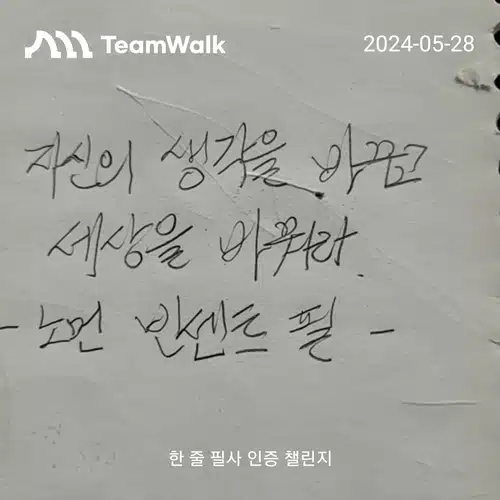 TeamWalk
2024-05-28
자신의 생각을 바꾸고
세상을 바꿔라.
- 노먼 빈센트 필 -
한 줄 필사 인증 챌린지